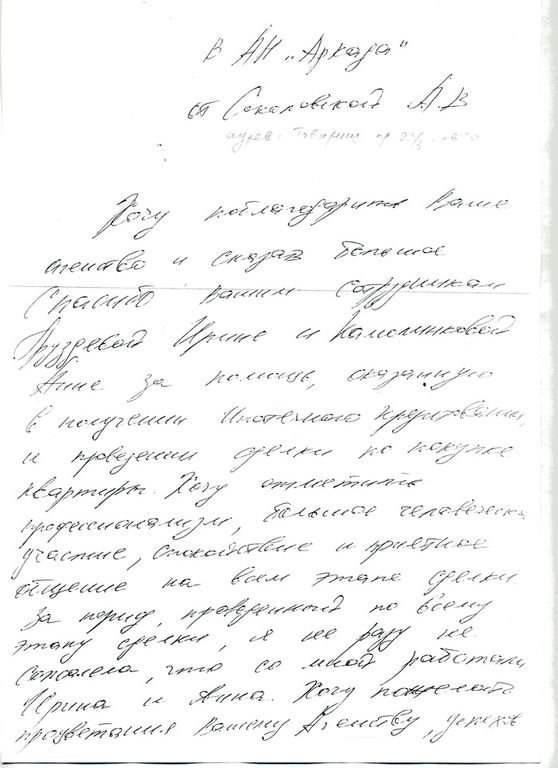 В АН „Аркада"
от Соколовской А.В
адрес:
Хочу поблагодарить Ваше
агенство и сказать большое
Спасибо вашим сотрудникам
Груздевой Ирине и
Анне за помощь, оказанную
в получении Ипотечного кредитования,
и проведении сделки по покупке
квартиры. Хочу отметить
профессионализм, большое человеческое
участие, спокойствие и приятное
общение на всем этапе сделки
За период, проведенный по всему
этапу сделки, я не разу не
сожалела, что со мной работали
Ирина и Анна. Хочу пожелать
процветания Вашему Агенству, успехов